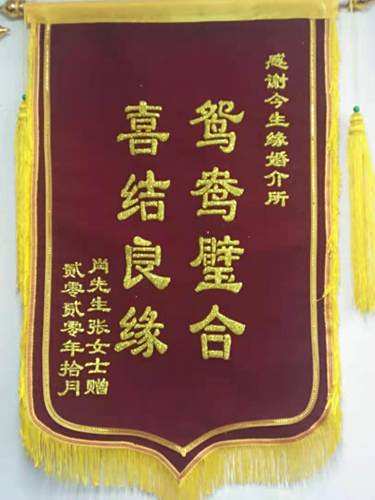 感谢今生缘婚介所
鸳鸯璧合
喜结良缘
尚先生张女士赠
贰零贰零年拾月